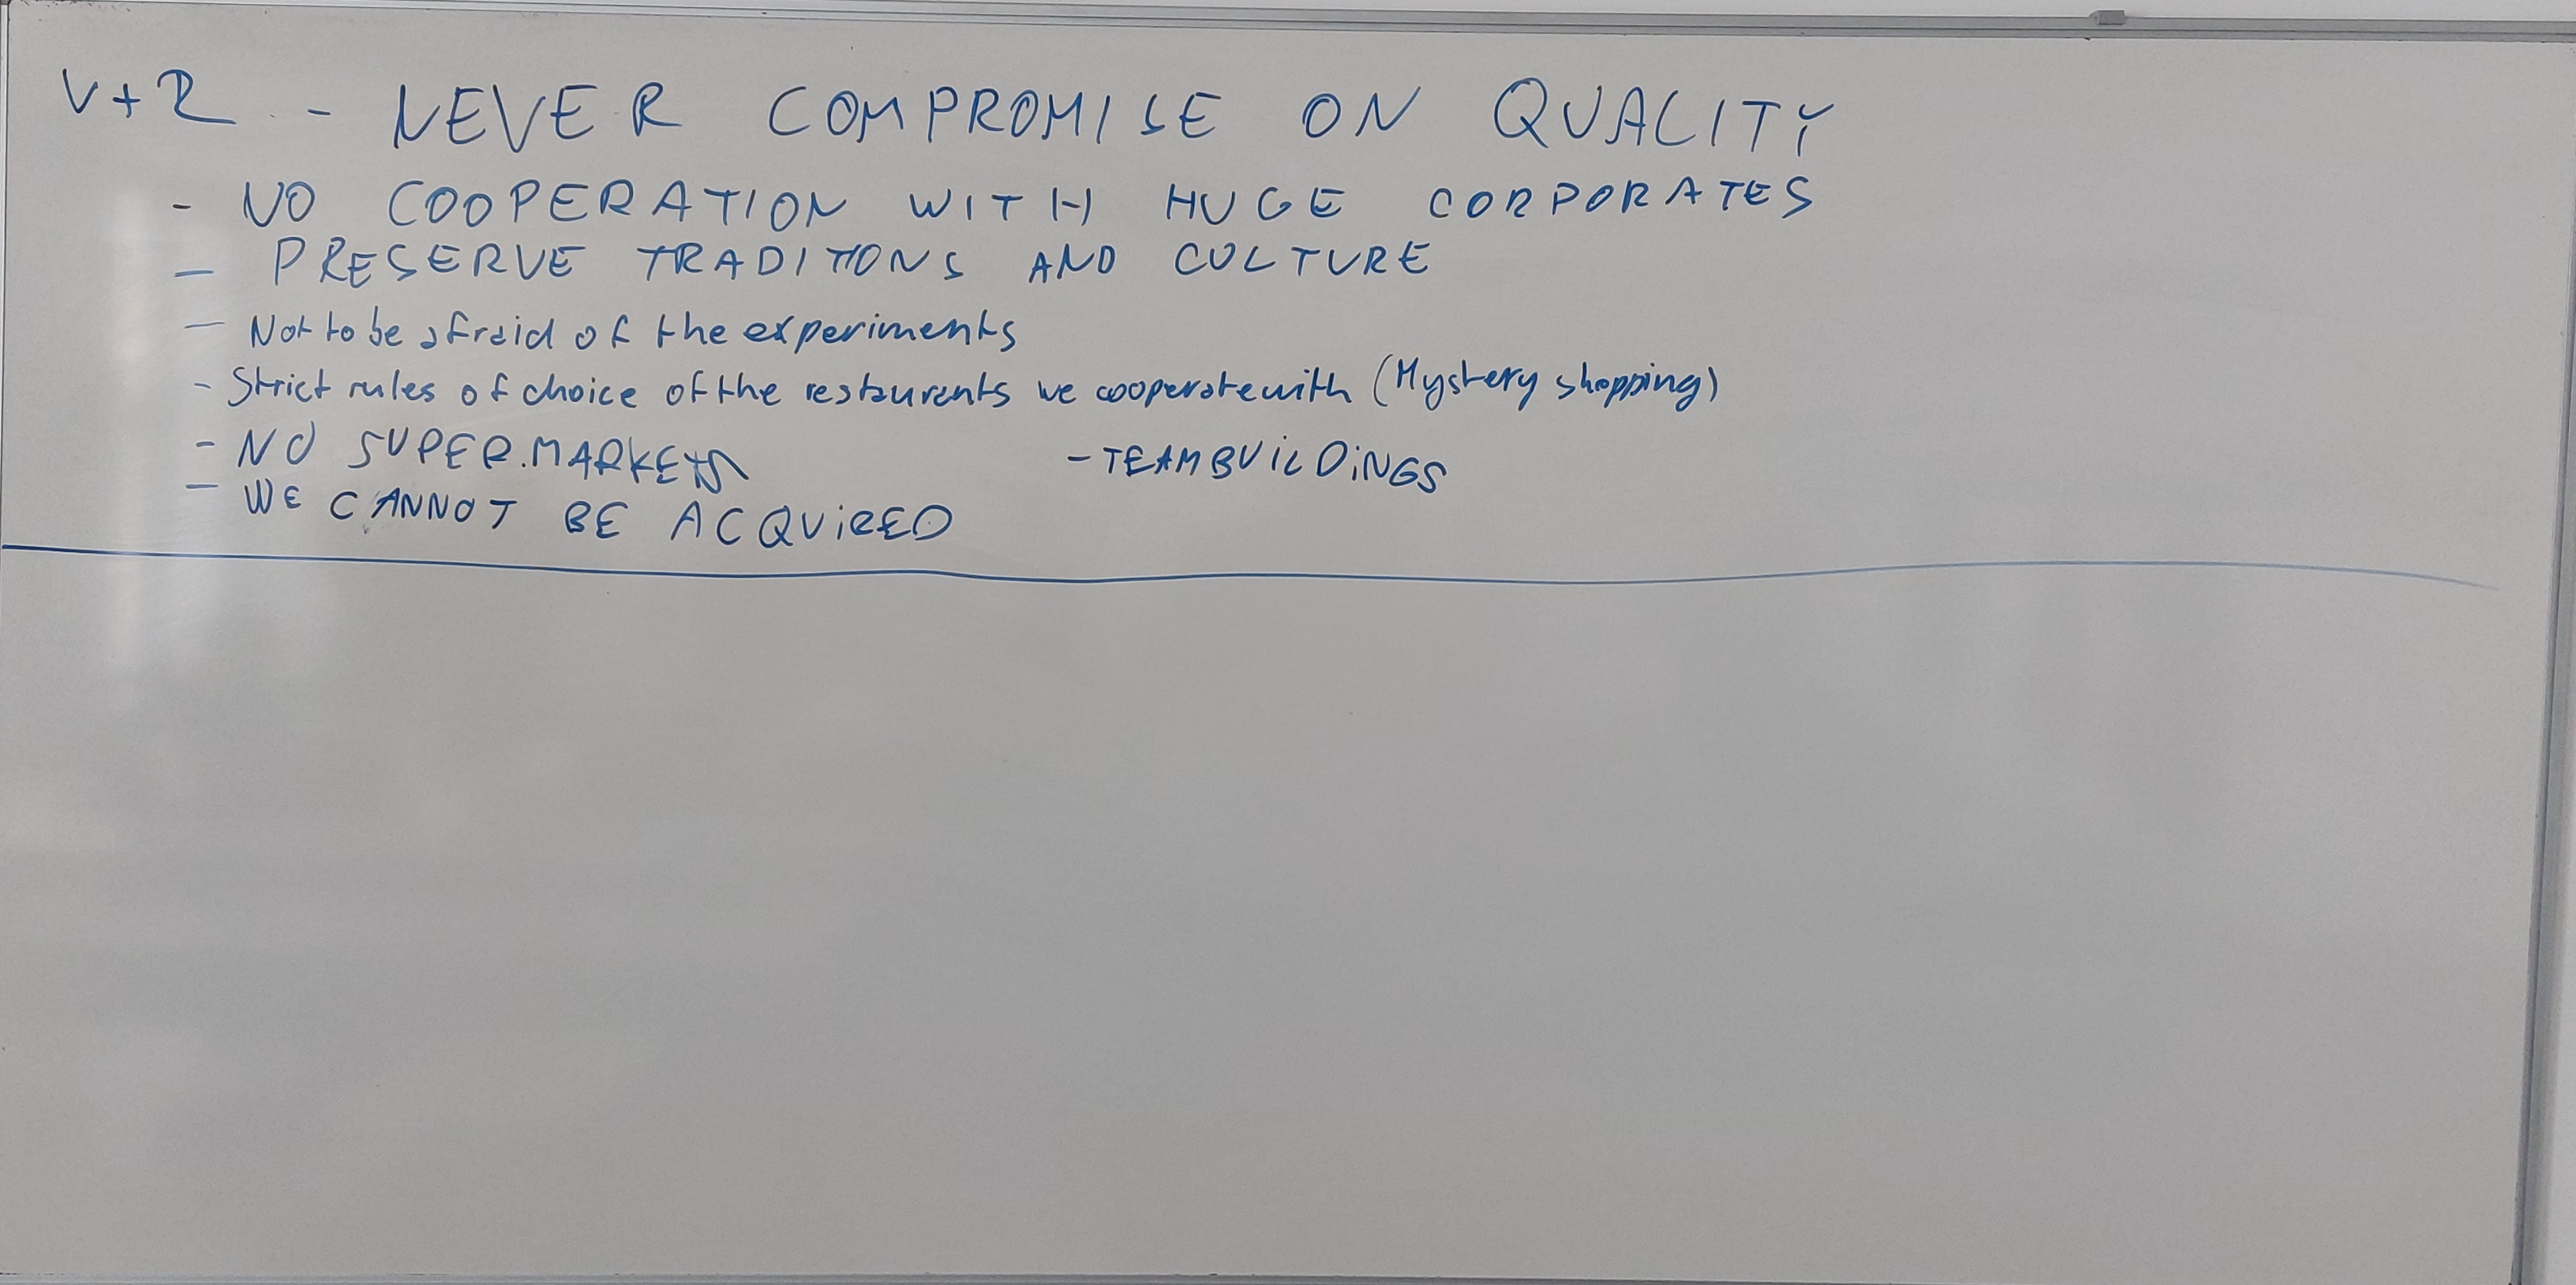 V+R - NEVER COMPROMISE ON QUALITY
- NO COOPERATION WITH HUGE CORPORATES
- PRESERVE TRADITIONS AND CULTURE
- Not to be afraid of the experiments
- Strict rules of choice of the restaurants we cooperate with (Mystery shopping)
- NO SUPERMARKETS - TEAMBUILDINGS
- WE CANNOT BE ACQUIRED